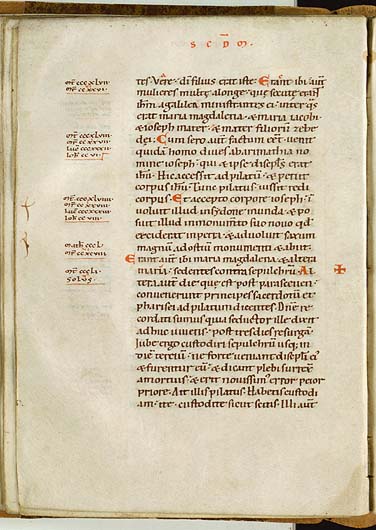 SCDM
tes· Vere· dī filius erat iste· Erant ibi aūt
mulieres multe alonge· que secute erant
ihm̄ agalilea ministrantes ei· inter quas
erat maria magdalena· & maria iacobi·
& ioseph mater· & mater filiorū zebe
dei· Cum sero aūt factum eēt· uenit
quidā homo diues abarimathia· no
mine ioseph· qui & ipse discipls erat
ihū· Hic accessit ad pilatū· & petiit
corpus ihū· Tunc pilatus iussit reddi
corpus· Et accepto corpore ioseph· in
uoluit illud insyndone munda· & po
suit illud inmonumto suo nouo qd
exciderat inpetra· & aduoluit saxum
magnū adostiū monumenti· & abiit·
Erant aūt ibi maria magdalena & altera
maria· sedentes contra sepulchrū· Al
tera aūt die que est post parasceuen·
conuenerunt principes sacerdotū &
pharisei ad pilatum dicentes· Dnē re
cordati sumus quia seductor ille dixit
adhuc uiuens· post tres dies resurgā·
Iube ergo custodiri sepulchrū usq; in
diē tertiū· ne forte ueniant discipli ei
& furentur eū· & dicant plebi surrex
amortuis· & erit nouissim error peior
priore· Ait illis pilatus· Habetis custodi
am· ite custodite sicut scitis· Illi aūt
Math cccl
solus